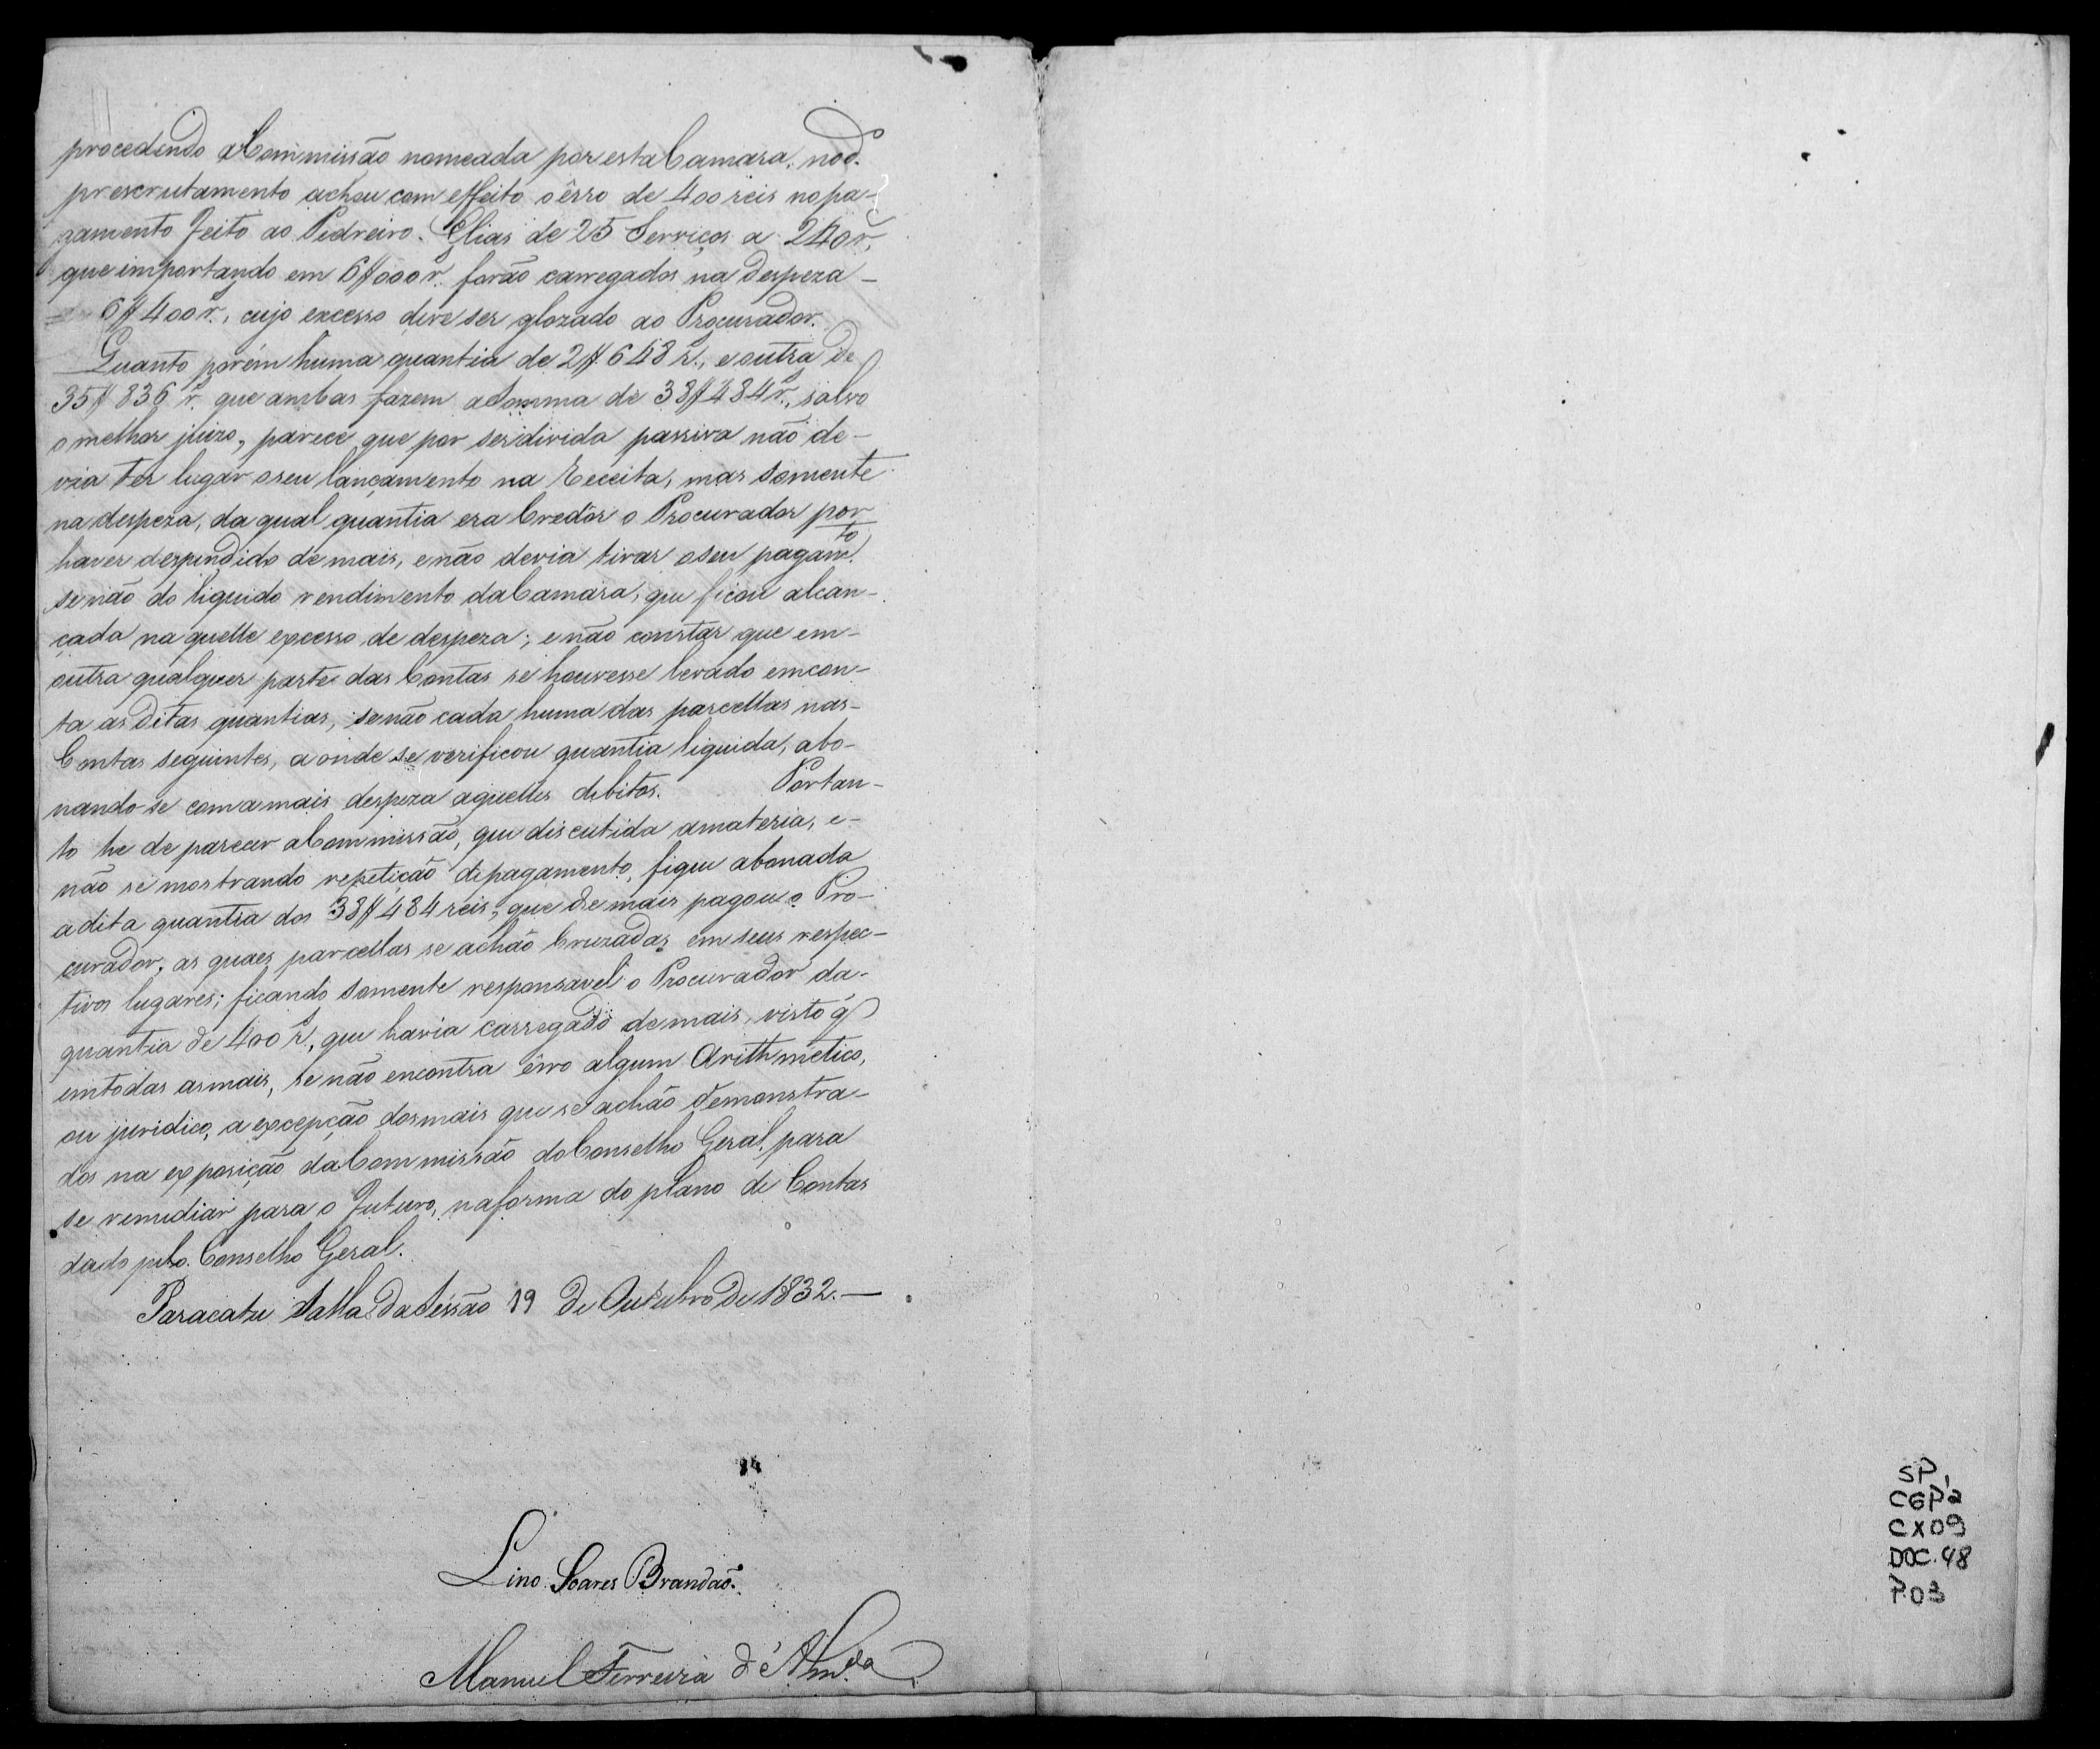 procedendo a Commissão nomeada por esta Camara, no d.º
prescrutamento achou com effeito o êrro de 400 reis no pa-
gamento feito ao Pedreiro Elias de 25 Serviços a 240 r.ˢ,
que importando em 6$000 r.ˢ forão carregados na despeza -
6$400 r.ˢ, cujo excesso deve ser glozado ao Procurador.
Quanto porém huma quantia de 2$648 r.ˢ, e outra de
35$836 r.ˢ que ambas fazem a Somma de 38$484 r.ˢ, salvo
o melhor juizo, parece que por ser divida passiva não de-
via ter lugar o seu lançamento na Receita, mas somente
na despeza, da qual quantia era Credôr o Procurador por
haver despendido de mais, e não devia tirar o seu pagam.to
se não do liquido rendimento da Camara, que ficou alcan-
çada na quelle excesso de despeza; e não constar que em-
outra qualquer parte das Contas se houvesse levado em con-
ta as ditas quantias, se não cada huma das parcellas nas-
Contas seguintes, a onde se verificou quantia liquida, abo-
nando-se com a mais despeza aquelles debitos. Portan-
to he de parecer a Commissão, que discutida a materia, e-
não se mostrando repetição de pagamento, fique abonada
a dita quantia dos 38$484 reis, que de mais pagou o Pro-
curador, as quaes parcellas se achão Cruzadas em seus respec-
tivos lugares; ficando somente responsavel o Procurador da-
quantia de 400 r.ˢ, que havia carregado de mais, visto q̃
em todas as mais, se não encontra êrro algum Arithmetico,
ou juridico, a excepção dos mais que se achão demonstra-
dos na exposição da Commissão do Conselho Geral, para
se remediar para o futuro, na forma do plano de Contas
dado pelo Conselho Geral.
Paracatu Salla da Sessão 19 de Outubro de 1832.—
Lino Soares Brandaõ.
Manuel Ferreira d'Alm.da
SP 1
CGP 2
CX 09
DOC. 48
P. 03